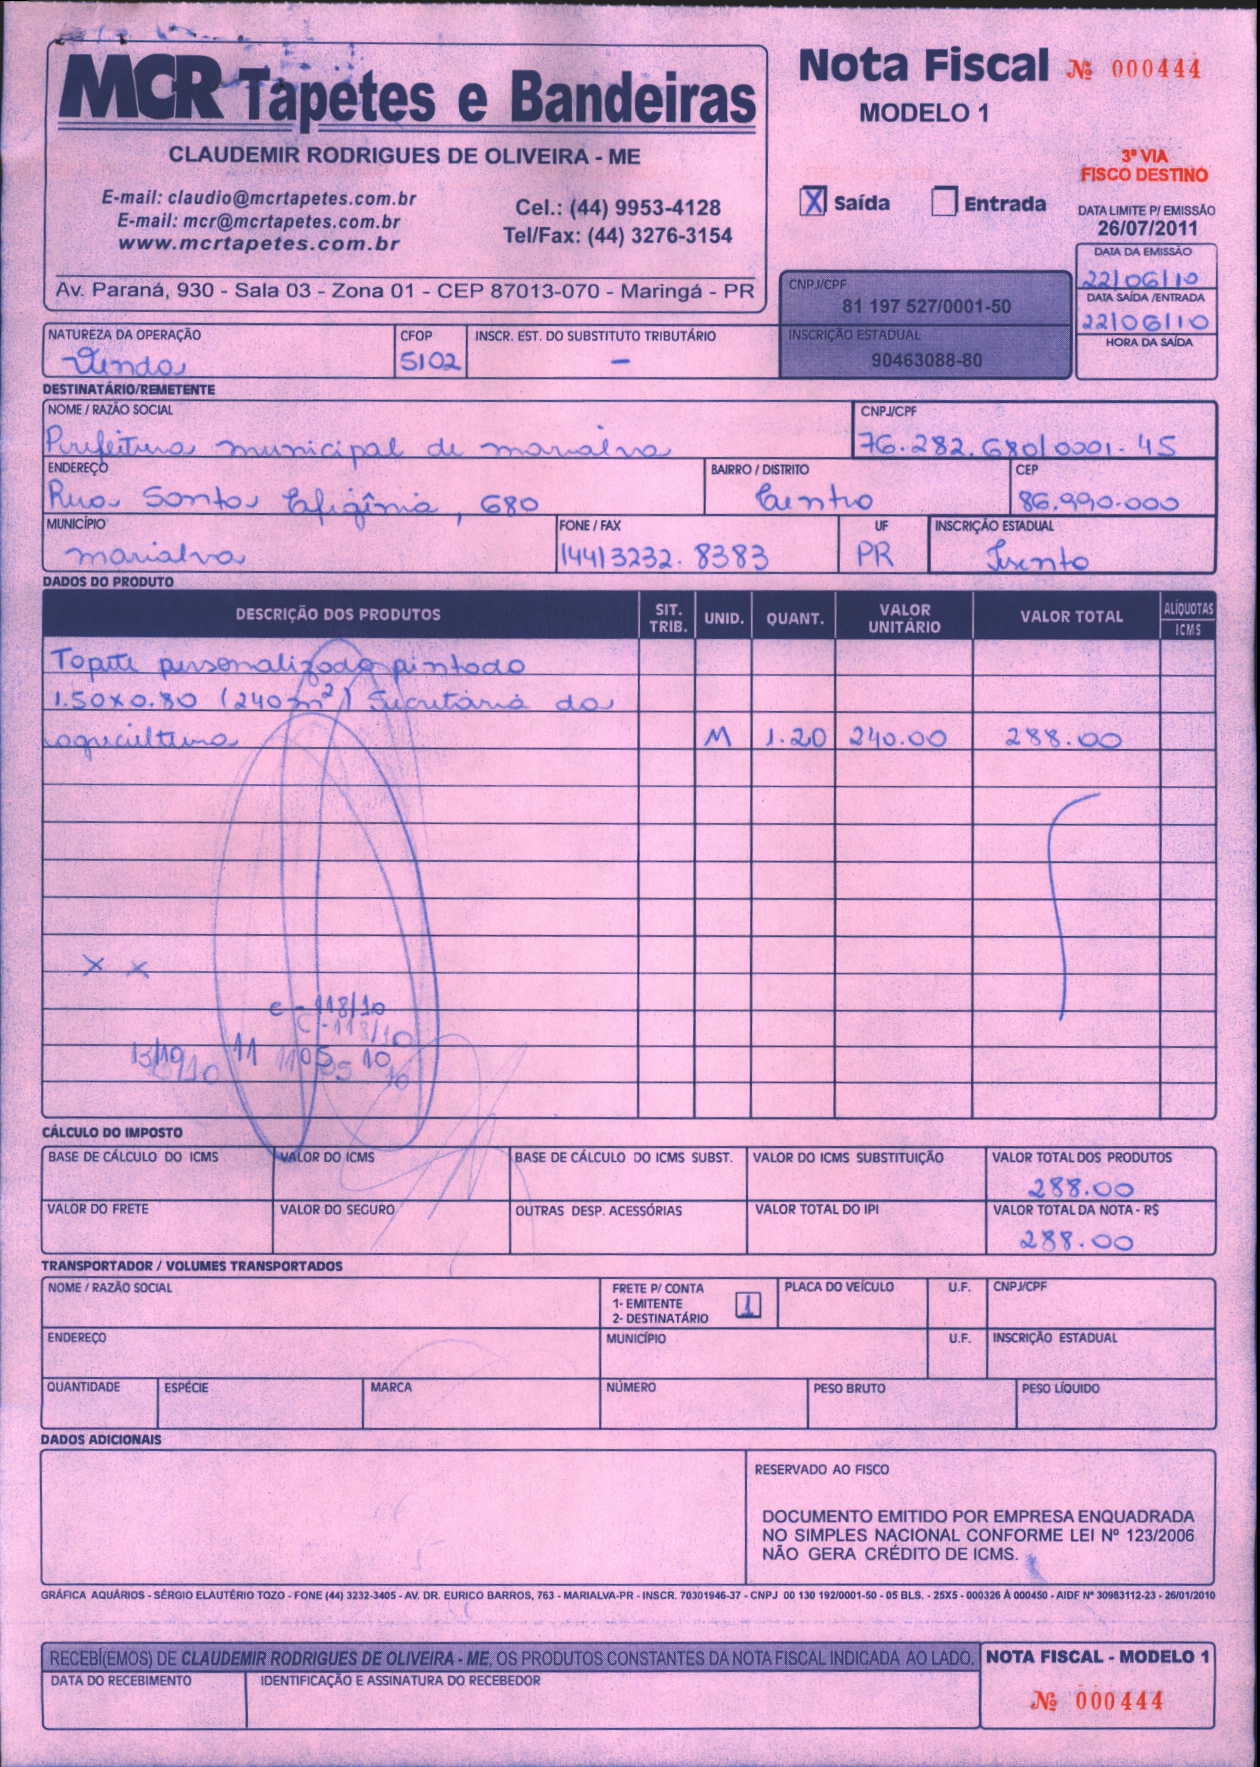 MCR Tapetes e Bandeiras
CLAUDEMIR RODRIGUES DE OLIVEIRA - ME
E-mail: claudio@mcrtapetes.com.br
E-mail: mcr@mcrtapetes.com.br
www.mcrtapetes.com.br
Cel.: (44) 9953-4128
Tel/Fax: (44) 3276-3154
Av. Paraná, 930 - Sala 03 - Zona 01 - CEP 87013-070 - Maringá - PR
Nota Fiscal № 000444
MODELO 1
3ª VIA
FISCO DESTINO
X Saída Entrada
DATA LIMITE P/ EMISSÃO
26/07/2011
DATA DA EMISSÃO
22/06/10
DATA SAÍDA /ENTRADA
22/06/10
HORA DA SAÍDA
CNPJ/CPF
81 197 527/0001-50
INSCRIÇÃO ESTADUAL
90463088-80
NATUREZA DA OPERAÇÃO CFOP INSCR. EST. DO SUBSTITUTO TRIBUTÁRIO
Venda 5102 -
DESTINATÁRIO/REMETENTE
NOME / RAZÃO SOCIAL CNPJ/CPF
Prefeitura municipal de marialva 76.282.680/0001-45
ENDEREÇO BAIRRO / DISTRITO CEP
Rua Santa Efigênia, 680 Centro 86.990-000
MUNICÍPIO FONE / FAX UF INSCRIÇÃO ESTADUAL
marialva (44) 3232.8383 PR Isento
DADOS DO PRODUTO
DESCRIÇÃO DOS PRODUTOS SIT. TRIB. UNID. QUANT. VALOR UNITÁRIO VALOR TOTAL ALÍQUOTAS ICMS
Tapete personalizado pintado
1.50x0.80 (240 m²) Secretária da
agricultura M 1.20 240.00 288.00
x x
c - 118/10
C - 118/10
13/10 11 1105 10
CÁLCULO DO IMPOSTO
BASE DE CÁLCULO DO ICMS VALOR DO ICMS BASE DE CÁLCULO DO ICMS SUBST. VALOR DO ICMS SUBSTITUIÇÃO VALOR TOTAL DOS PRODUTOS
288.00
VALOR DO FRETE VALOR DO SEGURO OUTRAS DESP. ACESSÓRIAS VALOR TOTAL DO IPI VALOR TOTAL DA NOTA - R$
288.00
TRANSPORTADOR / VOLUMES TRANSPORTADOS
NOME / RAZÃO SOCIAL FRETE P/ CONTA 1- EMITENTE 2- DESTINATÁRIO 1 PLACA DO VEÍCULO U.F. CNPJ/CPF
ENDEREÇO MUNICÍPIO U.F. INSCRIÇÃO ESTADUAL
QUANTIDADE ESPÉCIE MARCA NÚMERO PESO BRUTO PESO LÍQUIDO
DADOS ADICIONAIS
RESERVADO AO FISCO
DOCUMENTO EMITIDO POR EMPRESA ENQUADRADA
NO SIMPLES NACIONAL CONFORME LEI Nº 123/2006
NÃO GERA CRÉDITO DE ICMS.
GRÁFICA AQUÁRIOS - SÉRGIO ELAUTÉRIO TOZO - FONE (44) 3232-3405 - AV. DR. EURICO BARROS, 763 - MARIALVA-PR - INSCR. 70301946-37 - CNPJ 00 130 192/0001-50 - 05 BLS. - 25X5 - 000326 À 000450 - AIDF Nº 30983112-23 - 26/01/2010
RECEBI(EMOS) DE CLAUDEMIR RODRIGUES DE OLIVEIRA - ME, OS PRODUTOS CONSTANTES DA NOTA FISCAL INDICADA AO LADO.
DATA DO RECEBIMENTO IDENTIFICAÇÃO E ASSINATURA DO RECEBEDOR
NOTA FISCAL - MODELO 1
№ 000444